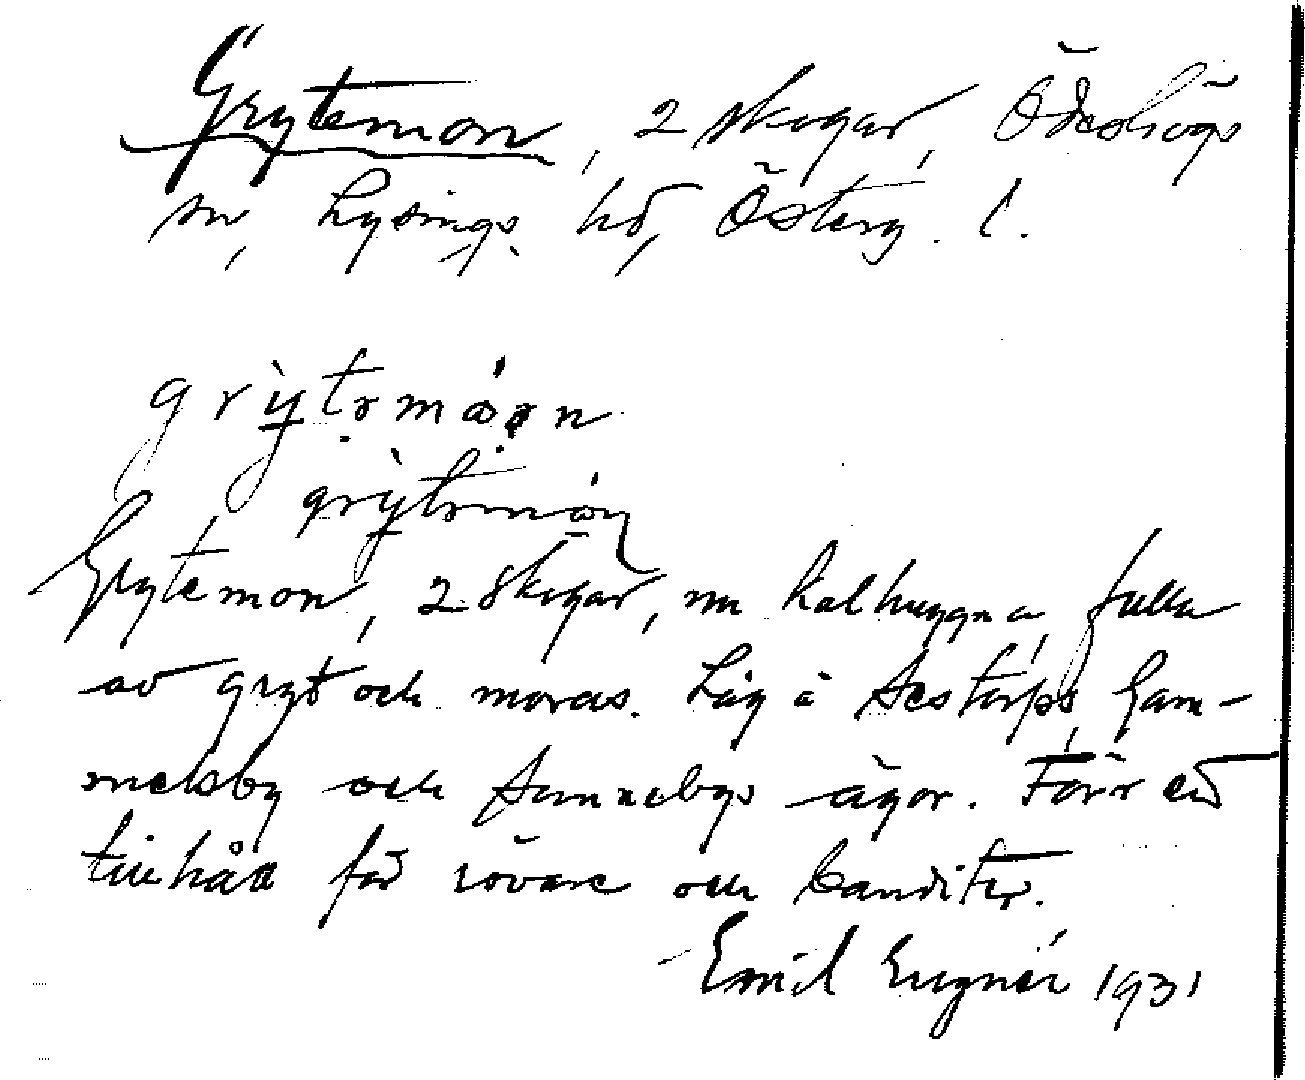 Grytemon, 2 skogar, Ödeshögs
sn, Lysings hd, Österg. l.
Grytemon, 2 skogar, nu kalhuggna, fulla
av gryt och moras. Låg å Sestorps, Gam-
melsby och Sunneby ägor. Förr ett
tillhåll för rövare och banditer.
Emil Eugnér 1931